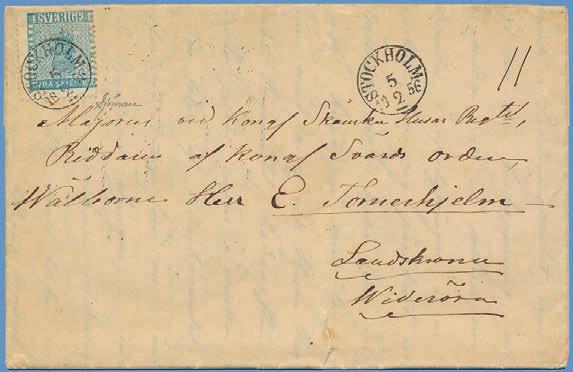 SVERIGE
FYRA SKILL.
STOCKHOLM
5 2 56
STOCKHOLM
5
2 56
11
Majoren vid Kongl Skånska Husar Regtet,
Riddaren af Kongl Svärds orden
Wälborne Herr E. Tornerhjelm
Landskrona
Wideröra